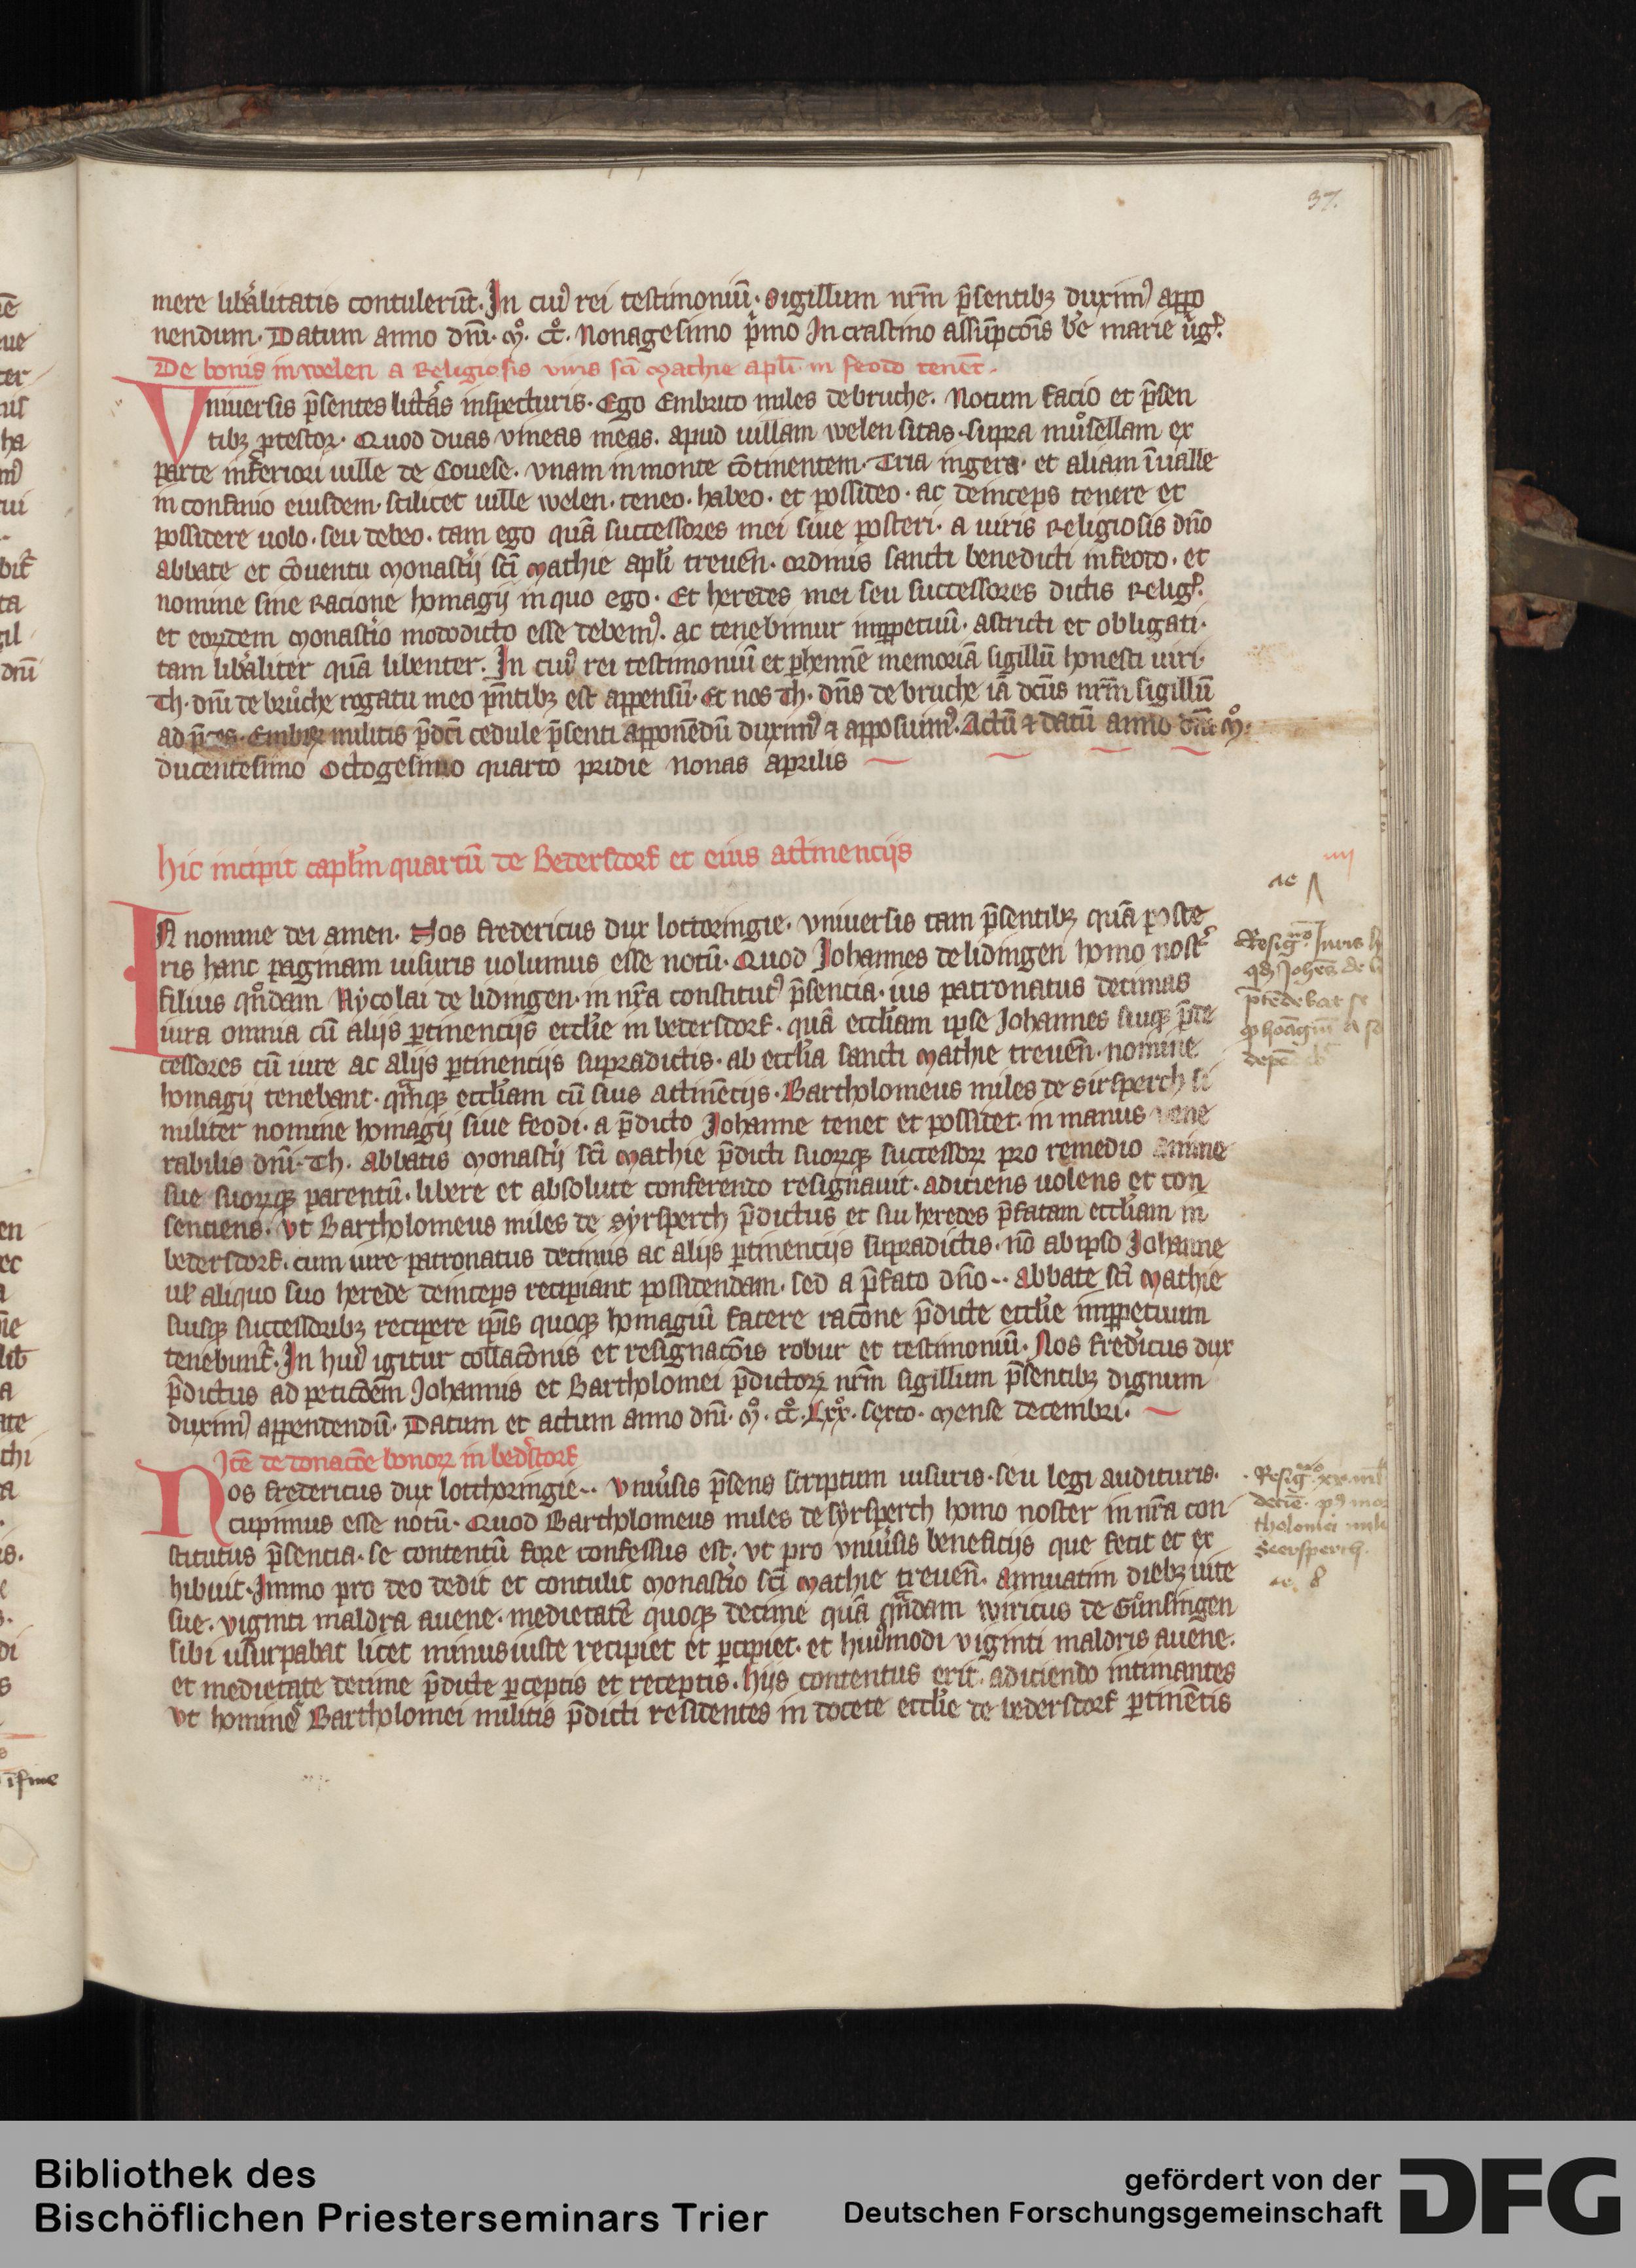 37.
mere lib̃alitatis contulerũt. In cuiꝰ rei testimoniũ. Sigillum nr̃m p̃sentibꝫ duximꝰ appo
nendum. Datum anno dñi. mͦ. ccͦ. Nonagesimo p̾mo In crastino assũpcõis bẽ marie ũgꝭ.
De bonis in welen a Religiosis viris scĩ Mathie apl̃i in feodo tenẽt.
Vniuersis p̃sentes litt̃as inspecturis. Ego Embrico miles de bruche. Notum facio et p̃sen
tibꝫ ꝓtestor. Quod duas vineas meas. apud uillam welen sitas. supra muͦsellam ex
parte inferiori uille de Couese. vnam in monte cõtinentem. Tria ingera. et aliam ĩ ualle
in confinio eiusdem. scilicet uille welen. teneo. habeo. et possideo. ac deinceps tenere et
possidere uolo. seu debeo. tam ego quã successores mei siue posteri. a uiris Religiosis dño
abbate et cõuentu Monastij scĩ Mathie apl̃i treueñ. ordinis sancti benedicti in feodo. et
nomine siue Racione homagij in quo ego. Et heredes mei seu successores dictis Religꝭ.
et eordem Monast̾io mododicto esse debemꝰ. ac tenebimur inꝑpetuũ. astricti et obligati.
tam lib̃aliter quã libenter. In cuiꝰ rei testimoniũ et ꝑhennẽ memoriã sigillũ honesti uiri.
Th. dñi de bruͦche rogatu meo p̃ntibꝫ est appensũ. Et nos Th. dñs de bruche iã dcũs nr̃m sigillũ
ad p̃ces. Embꝛ militis p̃dcĩ cedule p̃senti apponẽdũ duximꝰ ⁊ apposuimꝰ. Actũ ⁊ datũ anno dñi mͦ.
ducentesimo Octogesimo quarto pridie nonas aprilis
Hic incipit capl̃m quartũ de Bedersdorf et eius attinencijs
iiij
In nomine dei amen. Nos fredericus dux lottoringie. vniuersis tam p̃sentibꝫ quã poste
ris hanc paginam uisuris uolumus esse notũ. Quod Johannes de lidingen homo nostꝭ
filius qͦndam Nycolai de lidingen. in nr̃a constitutꝰ p̃sencia. ius patronatus decimas
iura omnia cũ alijs ꝑtinencijs eccl̃ie in bedersdorf. quã eccl̃iam ipse Johannes suiqꝫ p̃de
cessores cũ iure ac alijs ꝑtinencijs supradictis. ab eccl̃ia sancti Mathie treueñ. nomine
homagij tenebant. qmͣqꝫ eccl̃iam cũ suis attinẽcijs. Bartholomeus miles de sirsperch si
militer nomine homagij siue feodi. a p̃dicto Johanne tenet et possidet. in manus uene
rabilis dñi. Th. abbatis Monastij scĩ Mathie p̃dicti suorꝝqꝫ successorꝝ pro remedio anime
sue suorꝝqꝫ parentũ. libere et absolute conferendo resignauit. adiciens uolens et con
senciens. vt Bartholomeus miles de syrsperch p̃dictus et sui heredes p̃fatam eccl̃iam in
bedersdorf. cum iure patronatus decimis ac alijs ꝑtinencijs supradictis. nõ ab ipso Johanne
uł aliquo suo herede deinceps recipiant possidendam. sed a p̃fato dño.. abbate scĩ Mathie
suisqꝫ successoribꝫ recipere ip̃is quoqꝫ homagiũ facere racõne p̃dicte eccl̃ie inꝑpetuum
tenebunt̾. In huiꝰ igitur collacõnis et resignacõis robur et testimoniũ. Nos fred̾icus dux
p̃dictus ad peticõem Johannis et Bartholomei p̃dictorꝝ nr̃m sigillum p̃sentibꝫ dignum
duximꝰ appendendũ. Datum et actum anno dñi. mͦ. ccͦ. Lxxͦ. sexto. Mense decembri.
Jtẽ de donacõe bonorꝝ in bed̾sdorf
Nos fredericus dux lotthoringie.. vniũsis p̃sens scriptum uisuris. seu legi audituris.
cupimus esse notũ. Quod Bartholomeus miles de syrsperch homo noster in nr̃a con
stitutus p̃sencia. se contentũ fore confessus est. vt pro vniũsis beneficijs que fecit et ex
hibuit. Jmmo pro deo dedit et contulit Monast̾io scĩ Mathie treueñ. annuatim diebꝫ uite
sue. viginti maldra auene. medietatẽ quoqꝫ decime quã qͦndam wiricus de Gůnsingen
sibi usurpabat licet minus iuste recipiet et ꝑcipiet. et huiꝰmodi viginti maldris auene.
et medietate decime p̃dicte ꝑceptis et receptis. hijs contentus erit. adiciendo intimantes
vt hominesͥ Bartholomei militis p̃dicti residentes in docete eccl̃ie de bedersdorf ꝑtinẽtis
Resigͦ Juris
qd Johẽs de
p̃tẽdebat se
Resigͦ xx. ml
decie. p
tholomei mile
Siersperch.
Bibliothek des
Bischöflichen Priesterseminars Trier
gefördert von der
Deutschen Forschungsgemeinschaft
DFG